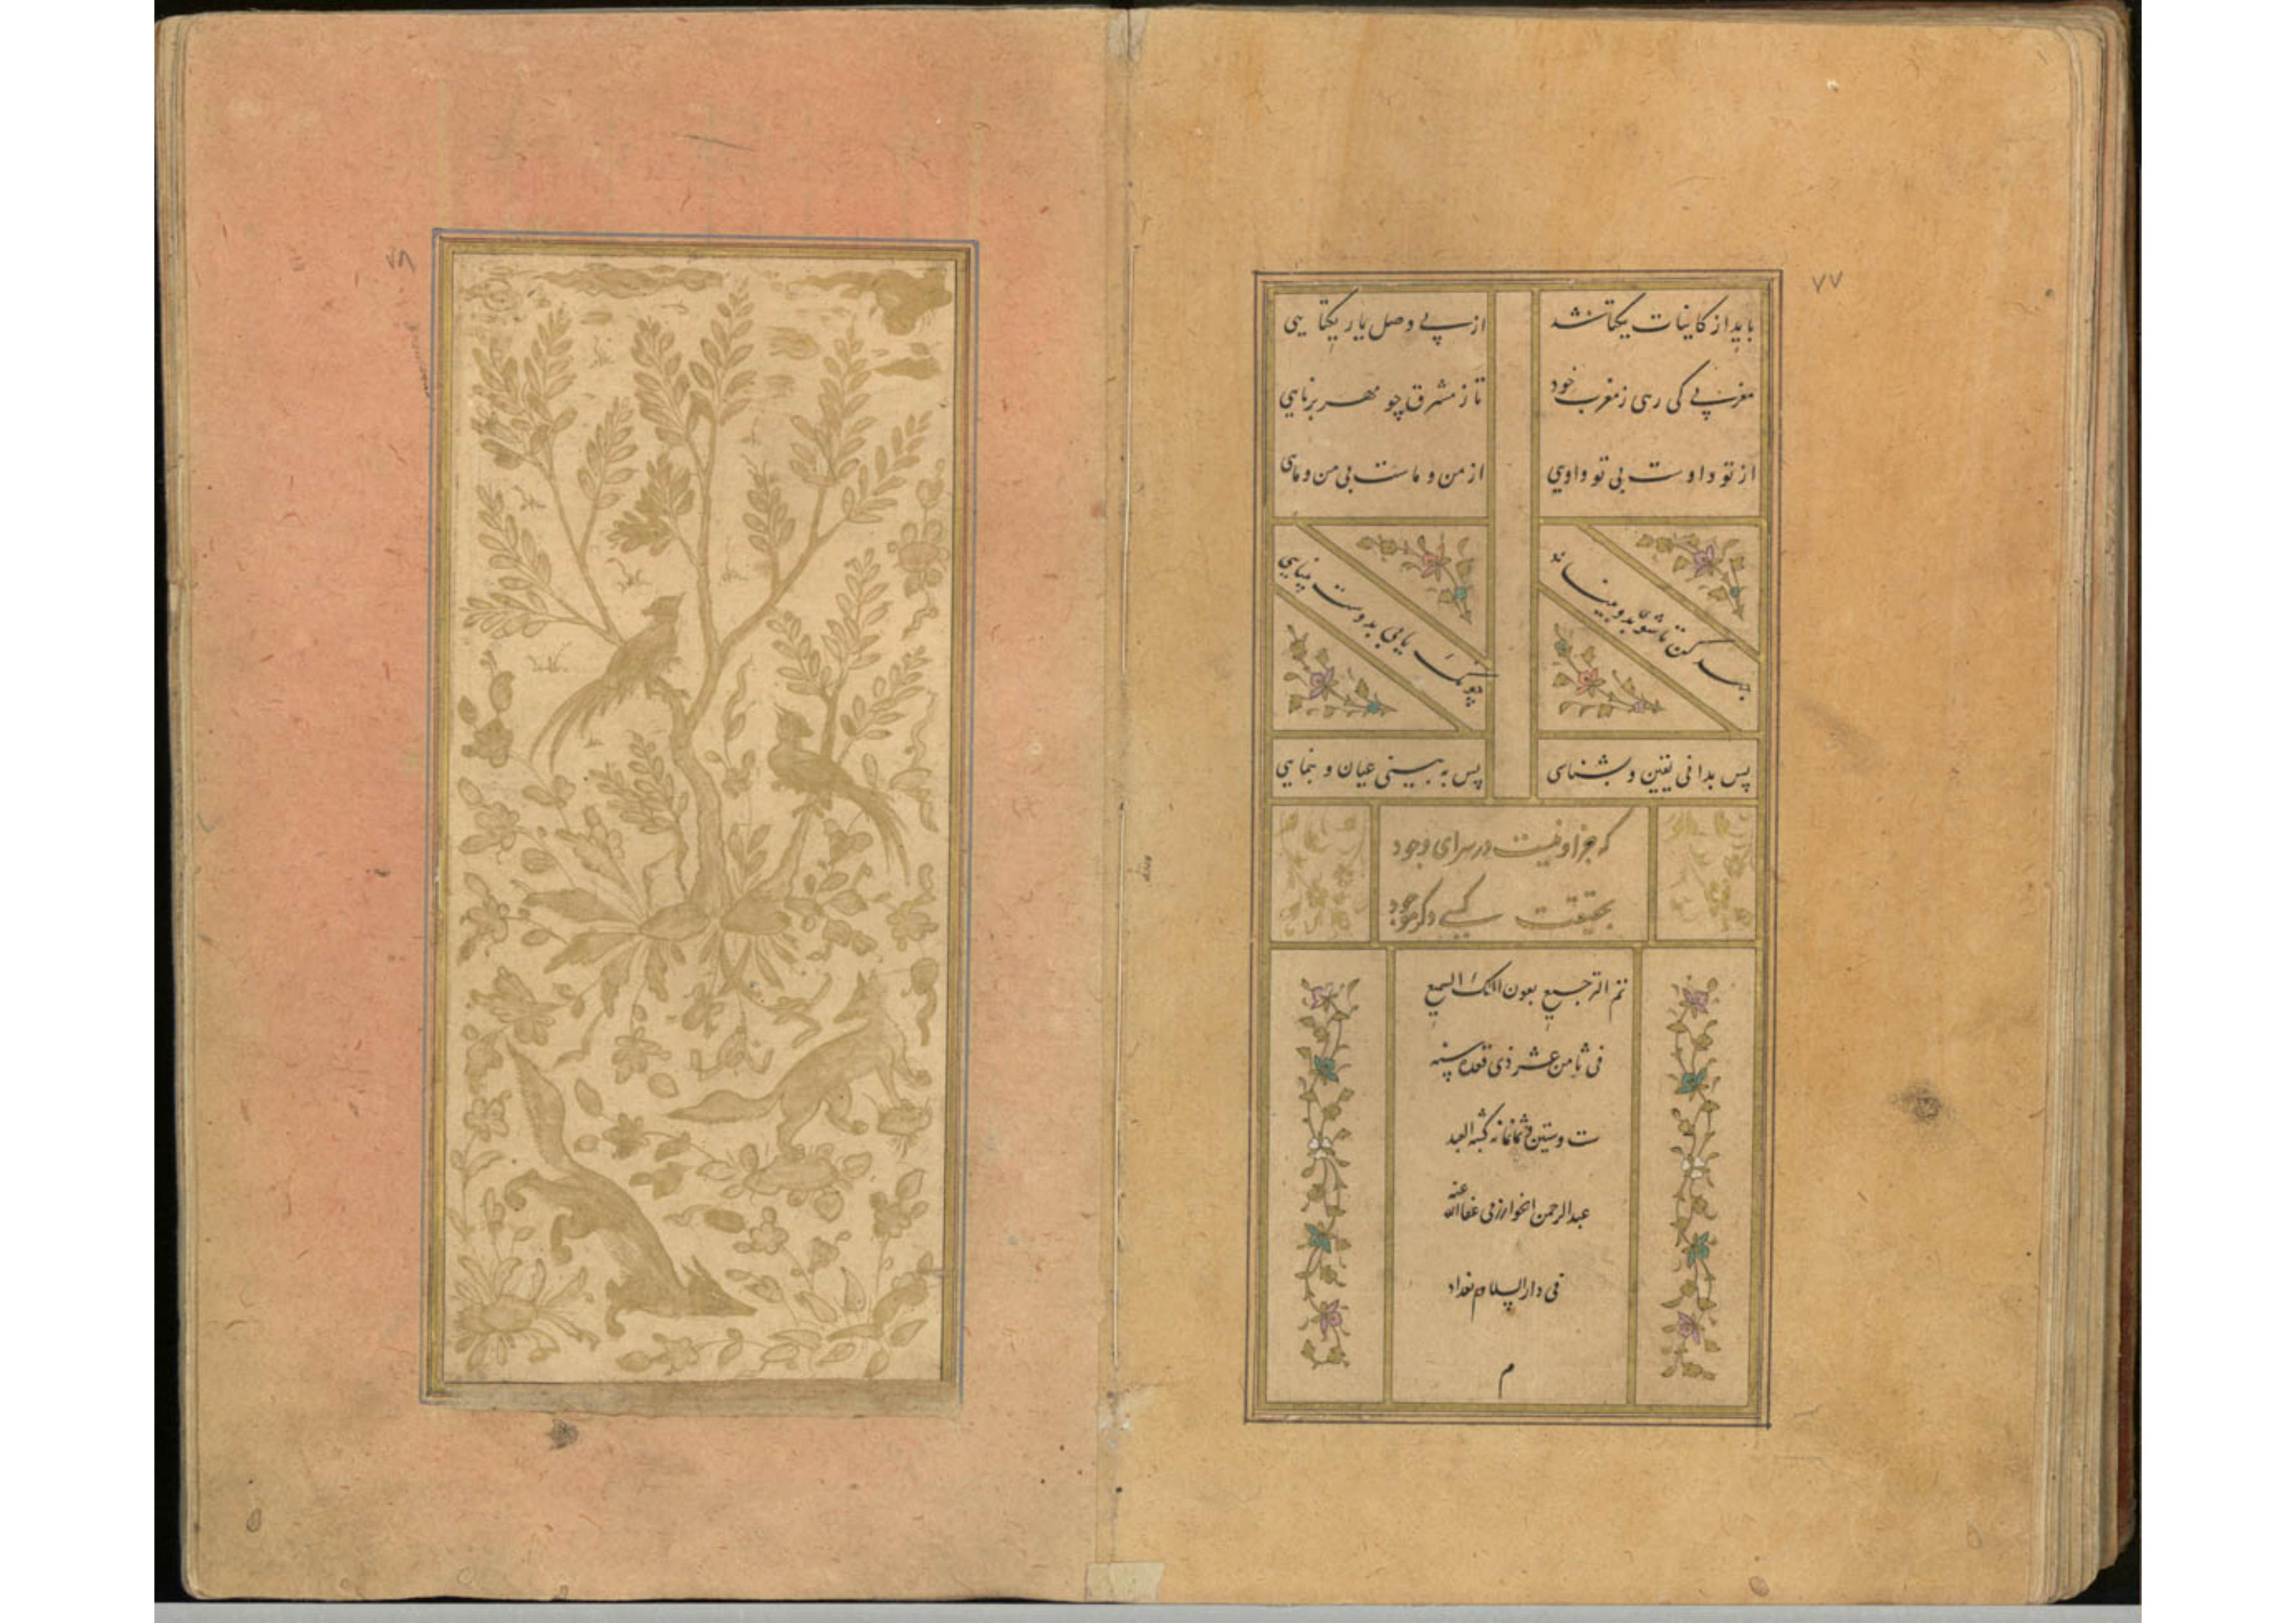 ۷۷
باید از کاینات یکتا شد
از پی وصل یار یکتایی
مغربی کی رسی ز مغرب خود
تا ز مشرق چو مهر برنایی
از تو و اوست بی تو و اویی
از من و ماست بی من و مای
جهد کن تا شوی بدو بینا
چونک یابی بدوست بینایی
پس بدانی یقین و بشناسی
پس به بینی عیان و بنمایی
که جز او نیست در سرای وجود
بحقیقت کسی دگر موجود
تم الترجیع بعون الملک السمیع
فی ثامن عشر ذی قعده سنه
ست و ستین و ثمانمائه کتبه العبد
عبدالرحمن الخوارزمی عفا الله عنه
فی دار السلام بغداد
م
۷۸